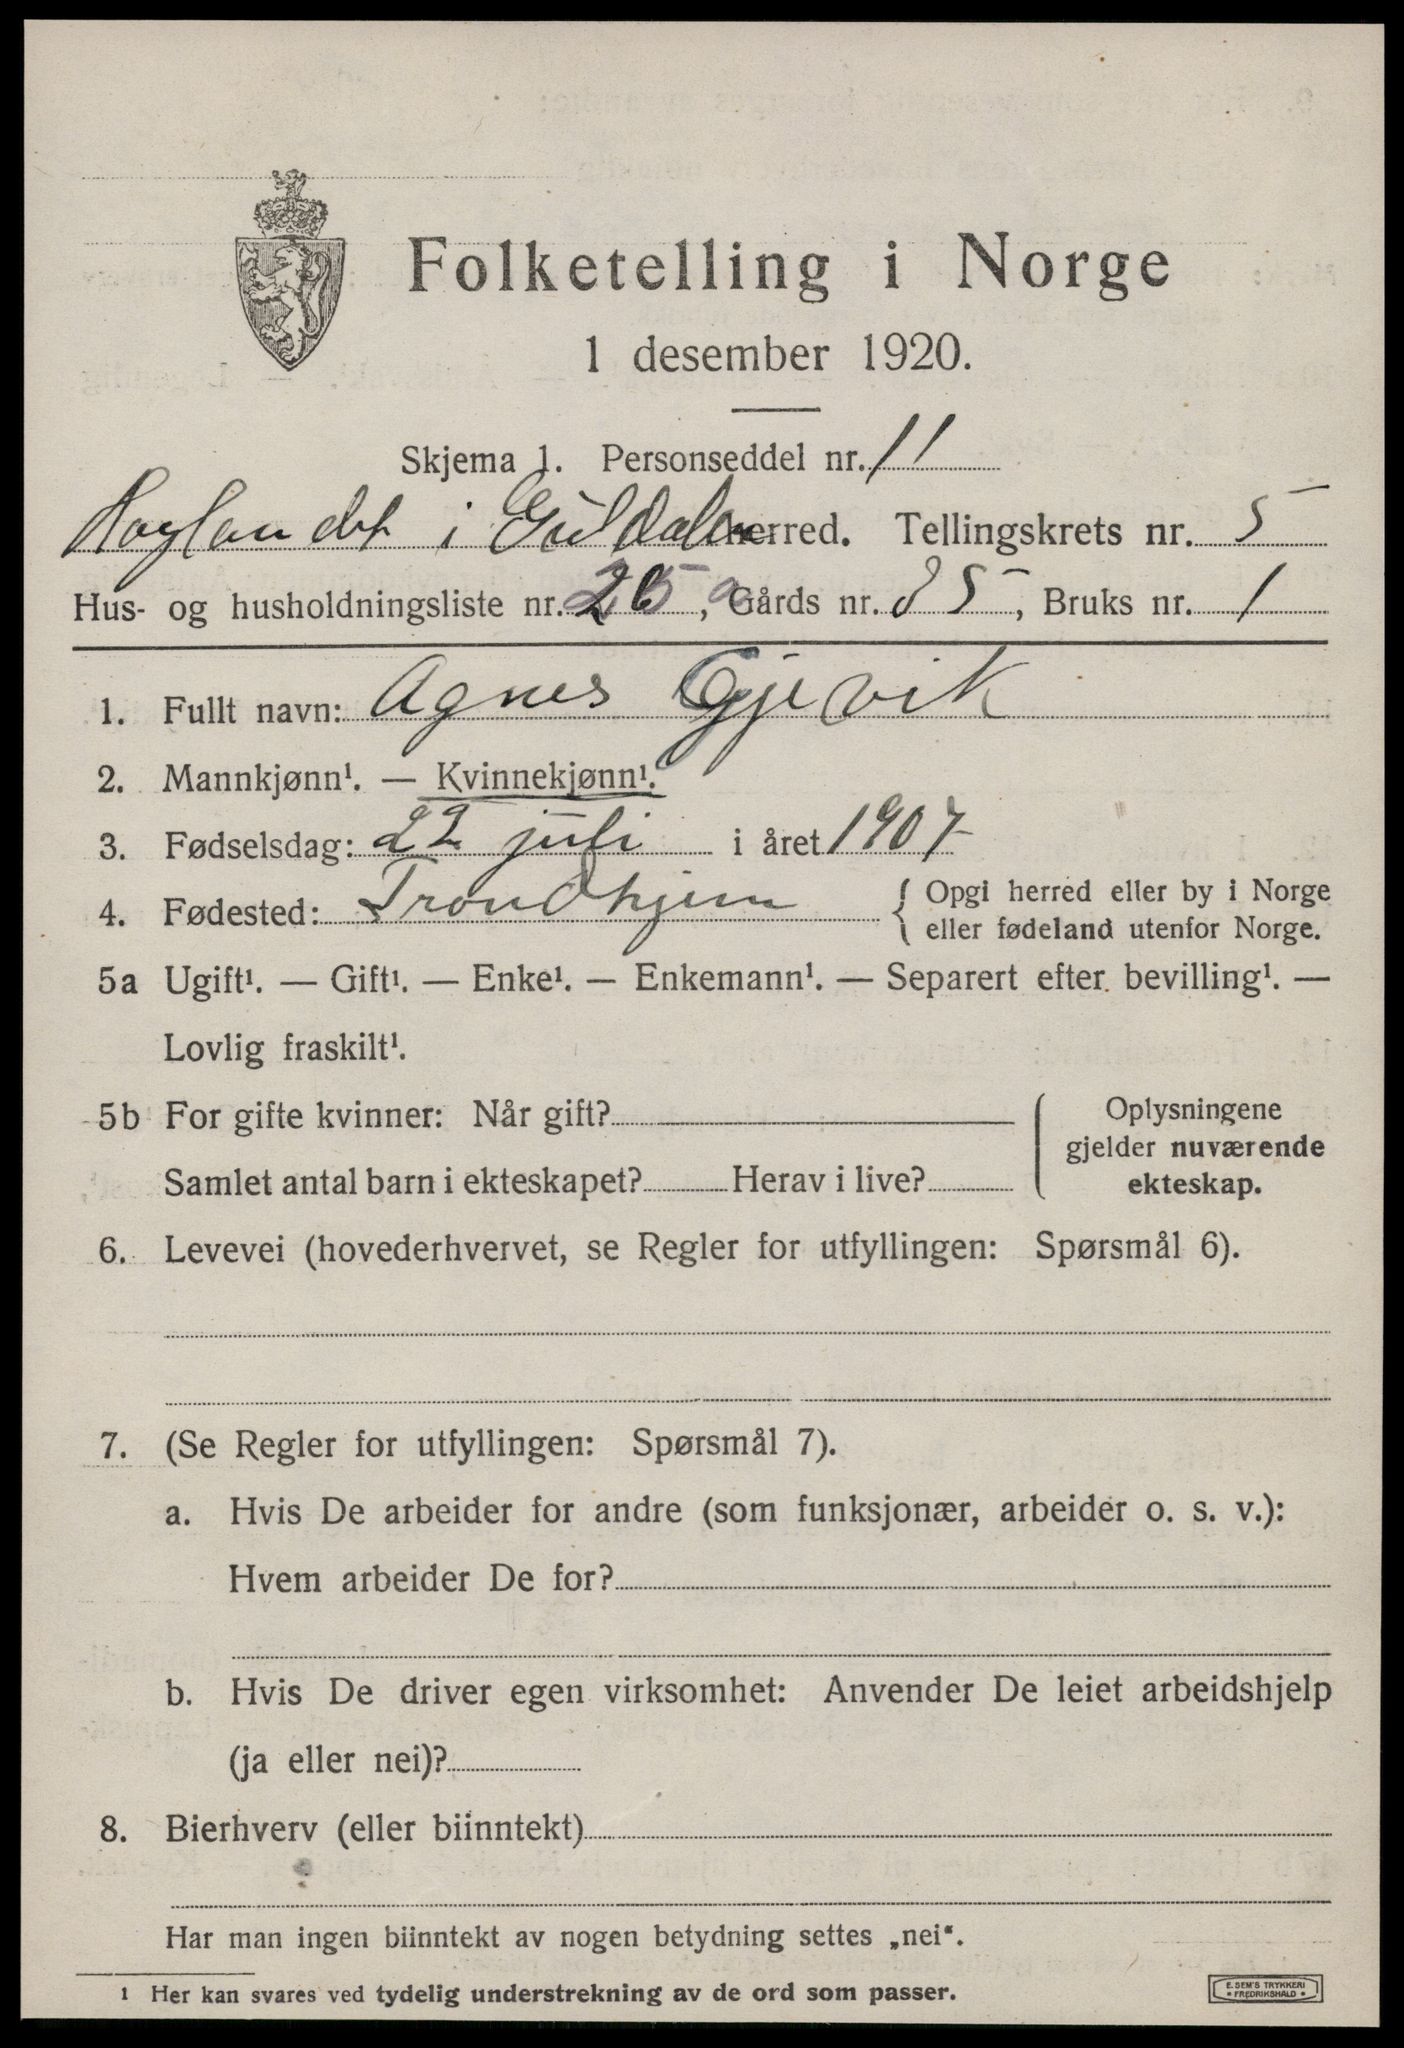 Folketelling i Norge
1 desember 1920.
Skjema 1. Personseddel nr. 11
i Guldalen herred. Tellingskrets nr. 5
Hus- og husholdningsliste nr. , Gårds nr. 85, Bruks nr. 1
1. Fullt navn: Agnes Gjevik
2. Mannkjønn¹. — Kvinnekjønn¹.
3. Fødselsdag: 22 juli i året 1907
4. Fødested: Trondhjem { Opgi herred eller by i Norge
eller fødeland utenfor Norge.
5a Ugift¹. — Gift¹. — Enke¹. — Enkemann¹. — Separert efter bevilling¹. —
Lovlig fraskilt¹.
5b For gifte kvinner: Når gift?
Samlet antal barn i ekteskapet? Herav i live?
Oplysningene
gjelder nuværende
ekteskap.
6. Levevei (hovederhvervet, se Regler for utfyllingen: Spørsmål 6).
7. (Se Regler for utfyllingen: Spørsmål 7).
a. Hvis De arbeider for andre (som funksjonær, arbeider o. s. v.):
Hvem arbeider De for?
b. Hvis De driver egen virksomhet: Anvender De leiet arbeidshjelp
(ja eller nei)?
8. Bierhverv (eller biinntekt)
Har man ingen biinntekt av nogen betydning settes „nei“.
1 Her kan svares ved tydelig understrekning av de ord som passer.
E. SEM'S TRYKKERI
• FREDRIKSHALD •